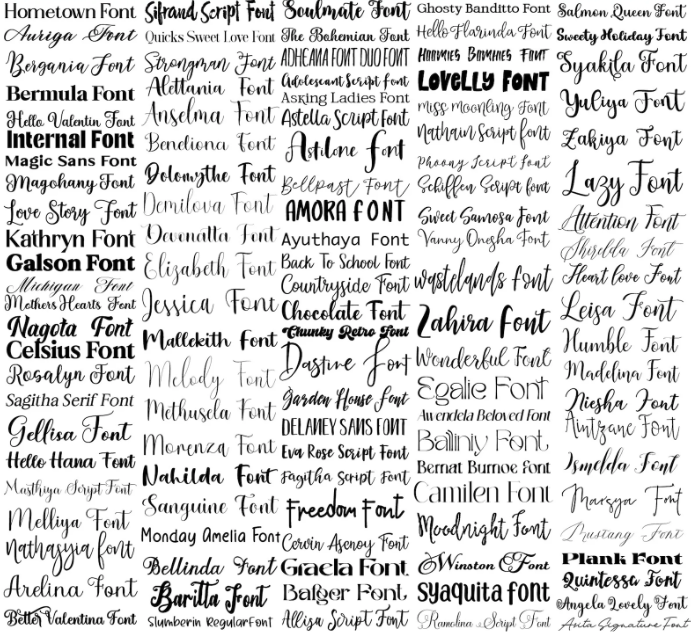 Hometown Font
Auriga Font
Bergania Font
Bermula Font
Hello Valentin Font
Internal Font
Magic Sans Font
Magohany Font
Love Story Font
Kathryn Font
Galson Font
Michigan Font
Mothers Hearts Font
Nagota Font
Celsius Font
Rosalyn Font
Sagitha Serif Font
Gellisa Font
Hello Hana Font
Marthiya Script Font
Melliya Font
Nathasyia font
Arelina Font
Better Valentina Font
Sifrand Script Font
Quicks Sweet Love Font
Strongman Font
Alettania Font
Anselma Font
Bendiona Font
Dolomythe Font
Demilova Font
Devonatta Font
Elizabeth Font
Jessica Font
Mallekith Font
Melody Font
Methusela Font
Morenza Font
Nahilda Font
Sanguine Font
Monday Amelia Font
Bellinda Font
Baritta Font
Slumberin Regular Font
Soulmate Font
The Bohemian Font
ADHEANA FONT DUO FONT
Adolescant Script Font
Asking Ladies Font
Astella Script Font
Astilone Font
Bellpast Font
AMORA FONT
Ayuthaya Font
Back To School Font
Countryside Font
Chocolate Font
Chunky Retro Font
Dastine Font
Garden House Font
DELANEY SANS FONT
Eva Rose Script Font
Fagitha Script Font
Freedom Font
Cervin Asenoy Font
Graela Font
Balger Font
Allisa Script Font
Ghosty Banditto Font
Hello Flarinda Font
Hommies Bommies Font
LOVELLY FONT
miss moonling Font
Nathain Script font
Phoony Script Font
Schiffen Script font
Sweet Samosa Font
Vanny Onesha Font
wastelands font
Zahira Font
Wonderful Font
Egalie Font
Awendela Beloved Font
Balliniy Font
Bernat Burnoe Font
Camilen Font
Moodnight Font
Winston Font
syaquita font
Ramolina Script Font
Salmon Queen Font
Sweety Holiday Font
Syakila Font
Yuliya Font
Zakiya Font
Lazy Font
Attention Font
Shirelda Font
Heart love Font
Leisa Font
Humble Font
Madelina Font
Niesha Font
Aintzane Font
Ismelda Font
Marsya Font
Mustang Font
Plank Font
Quintessa Font
Angela Lovely Font
Avita Signature Font